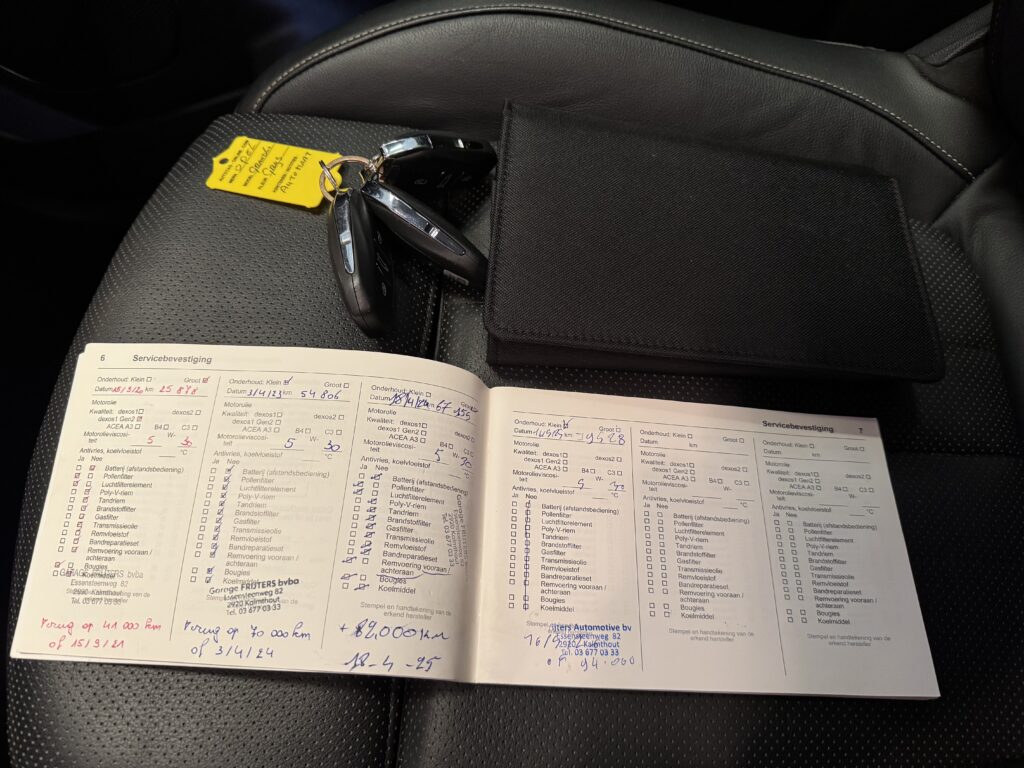 AUTOMAAT
6 Servicebevestiging
Onderhoud: Klein Groot
Datum 15/9/20 km 25 878
Motorolie
Kwaliteit: dexos1 dexos2
dexos1 Gen2
ACEA A3 B4 C3
Motorolieviscosi-
teit 5 W- 30
Antivries, koelvloeistof °C
Ja Nee
Batterij (afstandsbediening)
Pollenfilter
Luchtfilterelement
Poly-V-riem
Tandriem
Brandstoffilter
Gasfilter
Transmissieolie
Remvloeistof
Bandreparatieset
Remvoering vooraan /
achteraan
Bougies
Koelmiddel
Essensteenweg 82
2920 Kalmthout
Tel. 03 677 03 33
Terug op 41 000 km
of 15/9/21
Onderhoud: Klein Groot
Datum 3/4/23 km 54 806
Motorolie
Kwaliteit: dexos1 dexos2
dexos1 Gen2
ACEA A3 B4 C3
Motorolieviscosi-
teit 5 W- 30
Antivries, koelvloeistof °C
Ja Nee
Batterij (afstandsbediening)
Pollenfilter
Luchtfilterelement
Poly-V-riem
Tandriem
Brandstoffilter
Gasfilter
Transmissieolie
Remvloeistof
Bandreparatieset
Remvoering vooraan /
achteraan
Bougies
Koelmiddel
Garage FRUTERS bvba
Essensteenweg 82
2920 Kalmthout
Tel. 03 677 03 33
Terug op 70 000 km
of 3/4/24
Onderhoud: Klein Groot
Datum 18/4/24 km 67 155
Motorolie
Kwaliteit: dexos1 dexos2
dexos1 Gen2
ACEA A3 B4 C3
Motorolieviscosi-
teit 5 W- 30
Antivries, koelvloeistof °C
Ja Nee
Batterij (afstandsbediening)
Pollenfilter
Luchtfilterelement
Poly-V-riem
Tandriem
Brandstoffilter
Gasfilter
Transmissieolie
Remvloeistof
Bandreparatieset
Remvoering vooraan /
achteraan
Bougies
Koelmiddel
Stempel en handtekening van de
erkend hersteller
+ 82.000 km
18-4-25
Servicebevestiging 7
Onderhoud: Klein Groot
Datum km
Motorolie
Kwaliteit: dexos1 dexos2
dexos1 Gen2
ACEA A3 B4 C3
Motorolieviscosi-
teit 5 W- 30
Antivries, koelvloeistof °C
Ja Nee
Batterij (afstandsbediening)
Pollenfilter
Luchtfilterelement
Poly-V-riem
Tandriem
Brandstoffilter
Gasfilter
Transmissieolie
Remvloeistof
Bandreparatieset
Remvoering vooraan /
achteraan
Bougies
Koelmiddel
Automotive bv
Essensteenweg 82
2920 Kalmthout
Tel. 03 677 03 33
of 94.000
Onderhoud: Klein Groot
Datum km
Motorolie
Kwaliteit: dexos1 dexos2
dexos1 Gen2
ACEA A3 B4 C3
Motorolieviscosi-
teit W-
Antivries, koelvloeistof °C
Ja Nee
Batterij (afstandsbediening)
Pollenfilter
Luchtfilterelement
Poly-V-riem
Tandriem
Brandstoffilter
Gasfilter
Transmissieolie
Remvloeistof
Bandreparatieset
Remvoering vooraan /
achteraan
Bougies
Koelmiddel
Stempel en handtekening van de
erkend hersteller
Onderhoud: Klein Groot
Datum km
Motorolie
Kwaliteit: dexos1 dexos2
dexos1 Gen2
ACEA A3 B4 C3
Motorolieviscosi-
teit W-
Antivries, koelvloeistof °C
Ja Nee
Batterij (afstandsbediening)
Pollenfilter
Luchtfilterelement
Poly-V-riem
Tandriem
Brandstoffilter
Gasfilter
Transmissieolie
Remvloeistof
Bandreparatieset
Remvoering vooraan /
achteraan
Bougies
Koelmiddel
Stempel en handtekening van de
erkend hersteller